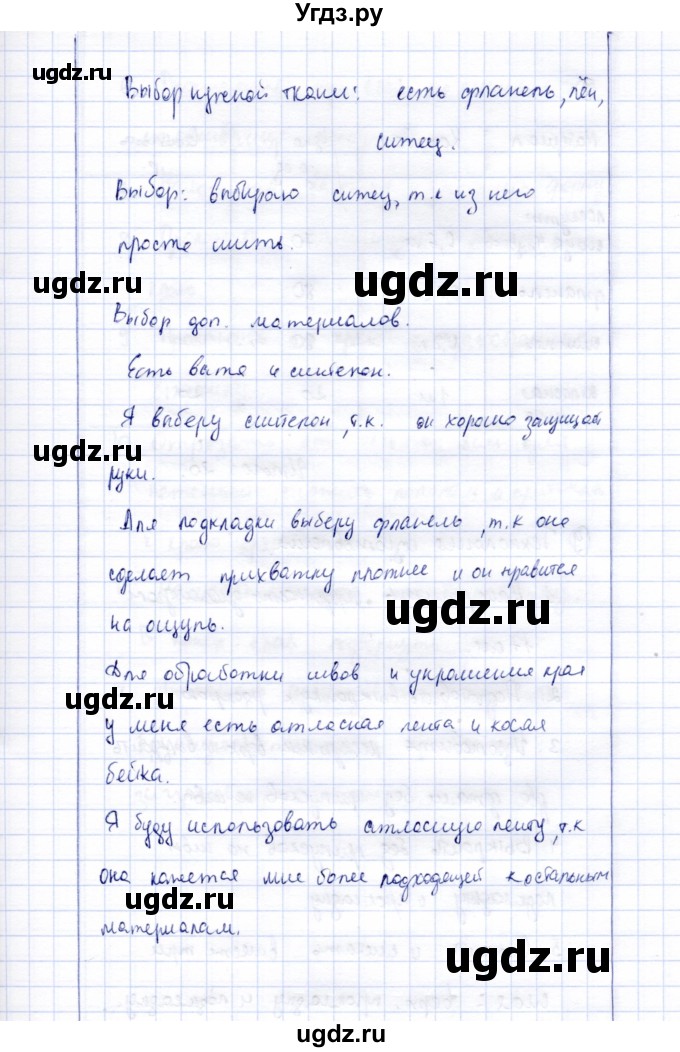 Угдз.ру
ugdz.ru
Выбор нужной ткани: есть фланель, лён,
ситец.
Выбор: выбираю ситец, т.к из него
просто шить.
ugdz.ru
ugdz.ru
Выбор доп. материалов.
Есть вата и синтепон.
Я выберу синтепон, т.к. он хорошо защищает
ugdz.ru
руки.
Для подкладки выберу фланель, т.к она
сделает прихватку плотнее и он нравится
ugdz.ru
на ощупь.
Для обработки швов и украшения края
ugdz.ru
у меня есть атласная лента и косая
бейка.
Я буду использовать атласную ленту, т.к
она кажется мне более подходящей к остальным
ugdz.ru
материалам.
ugdz.ru
ugdz.ru